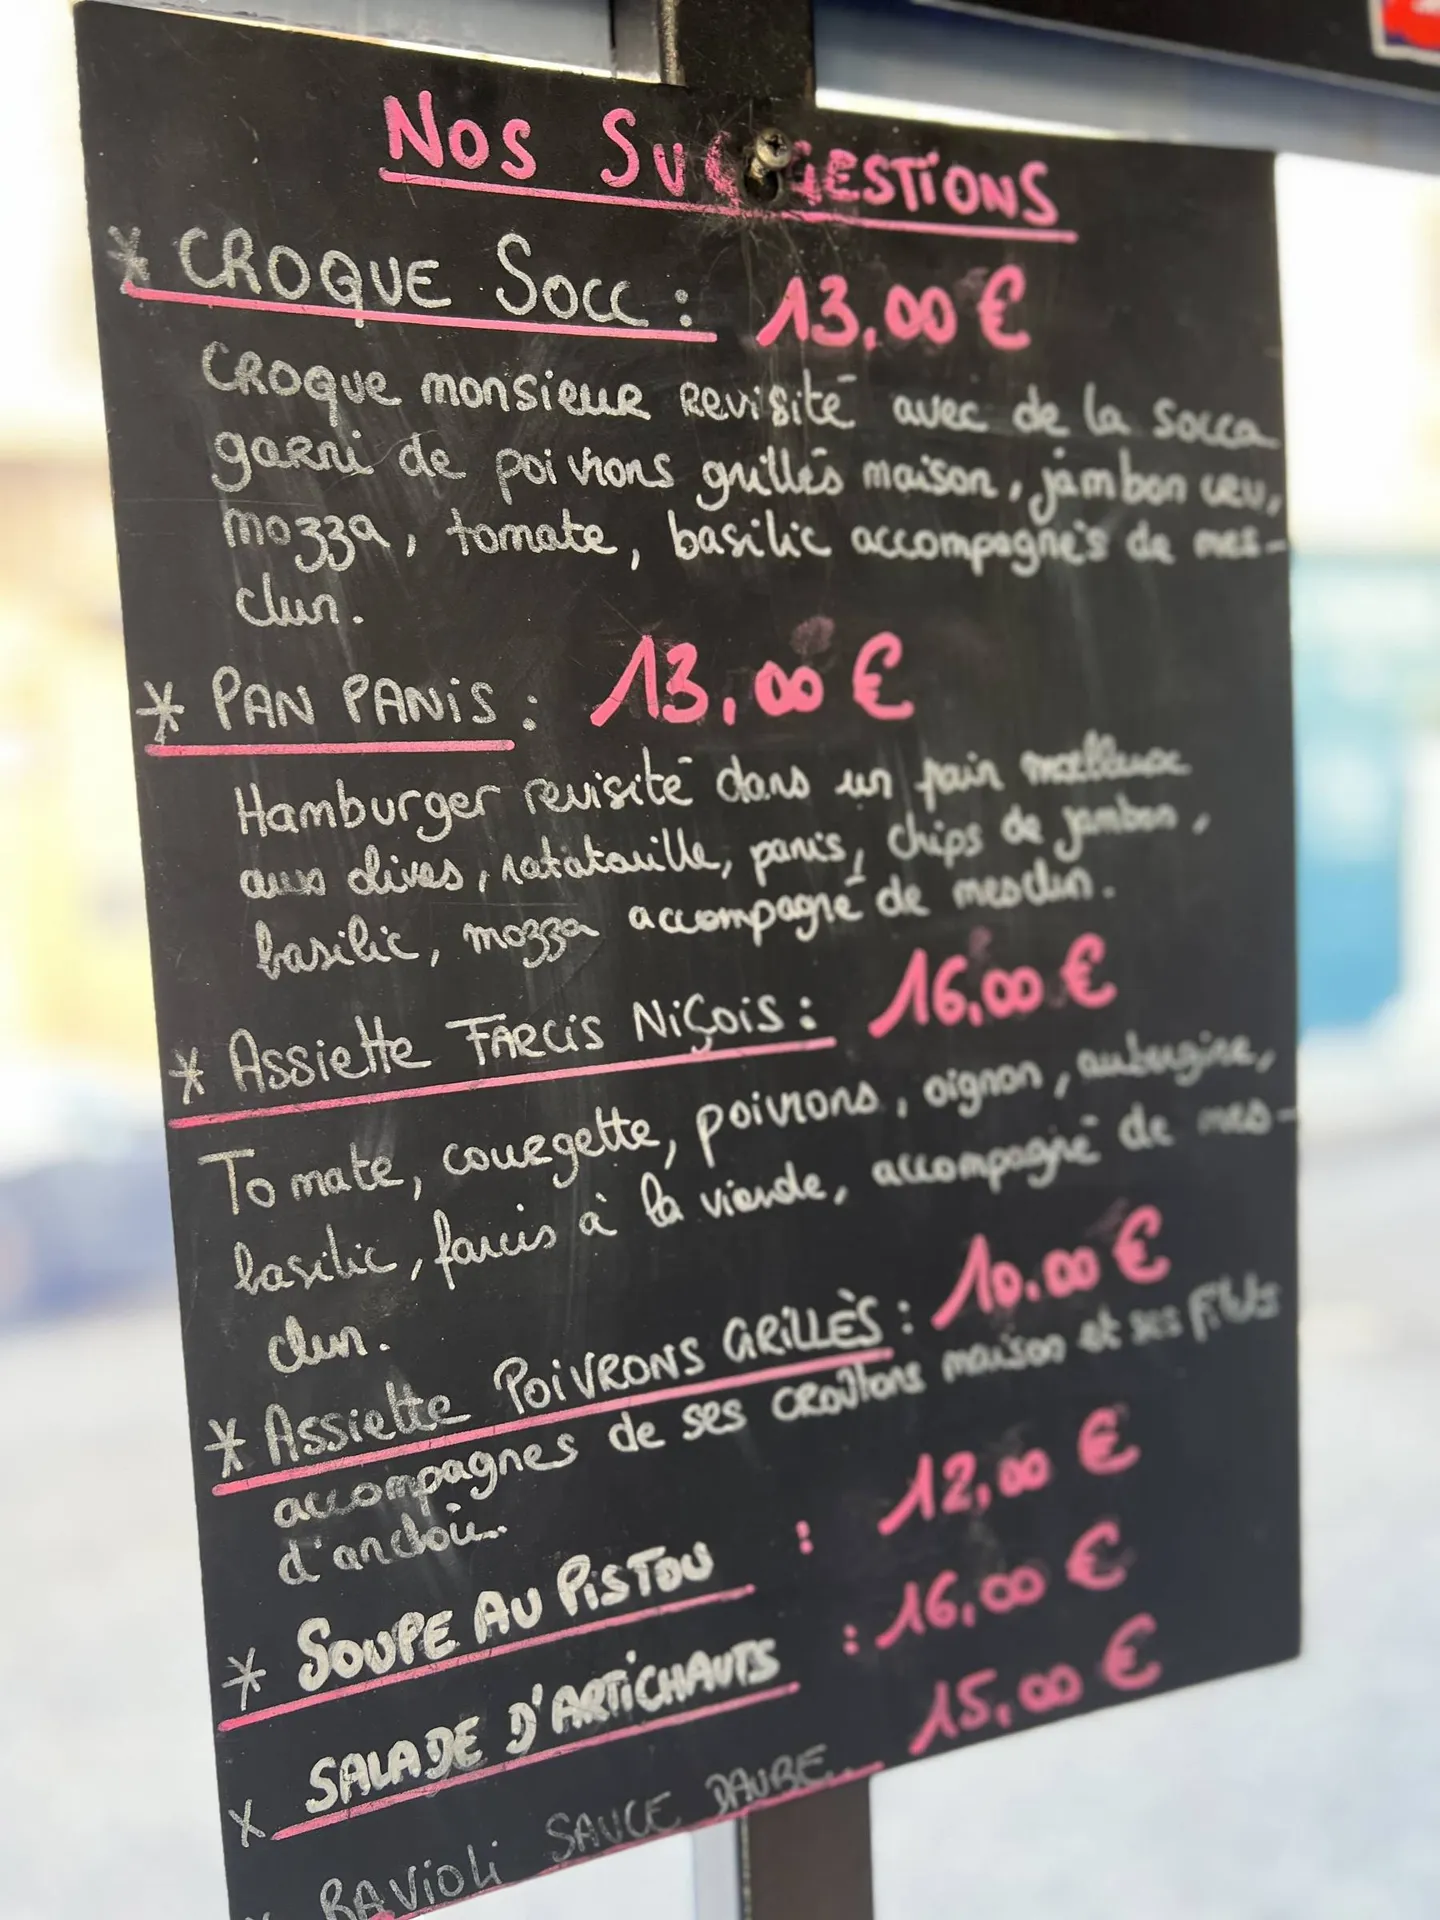 NOS SUGGESTIONS
* CROQUE SOCC : 13,00 €
CROQUE monsieur Revisité avec de la Socca
garni de poivrons grillés maison, jambon cru,
mozza, tomate, basilic accompagnés de mes-
clun.
* PAN PANIS : 13,00 €
Hamburger revisité dans un pain moelleux
aux olives, ratatouille, panis, chips de jambon,
basilic, mozza accompagné de mesclun.
* Assiette FARCIS NIÇOIS : 16,00 €
Tomate, courgette, poivrons, oignon, aubergine,
basilic, farcis à la viande, accompagné de mes-
clun.
* Assiette POIVRONS GRILLÈS : 10.00 €
accompagnes de ses CROÛtons maison et ses filets
d'anchoie.
* SOUPE AU PISTOU : 12,00 €
* SALADE D'ARTICHAUTS : 16,00 €
* RAVIOLI SAUCE DAUBE 15,00 €